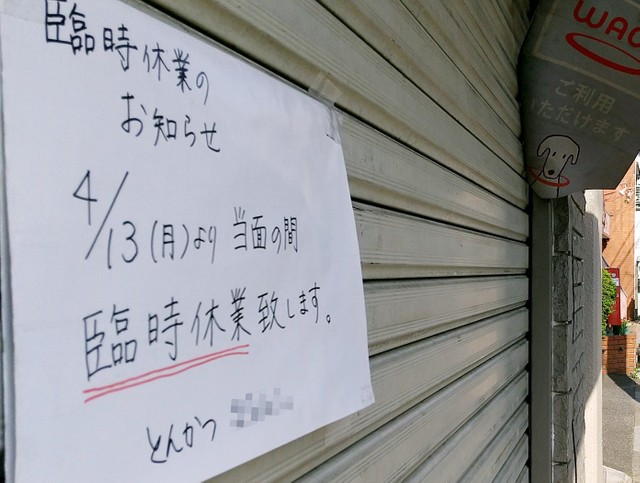 臨時休業の
お知らせ
4/13(月)より 当面の間
臨時休業致します。
とんかつ
WAO
ご利用
いただけます